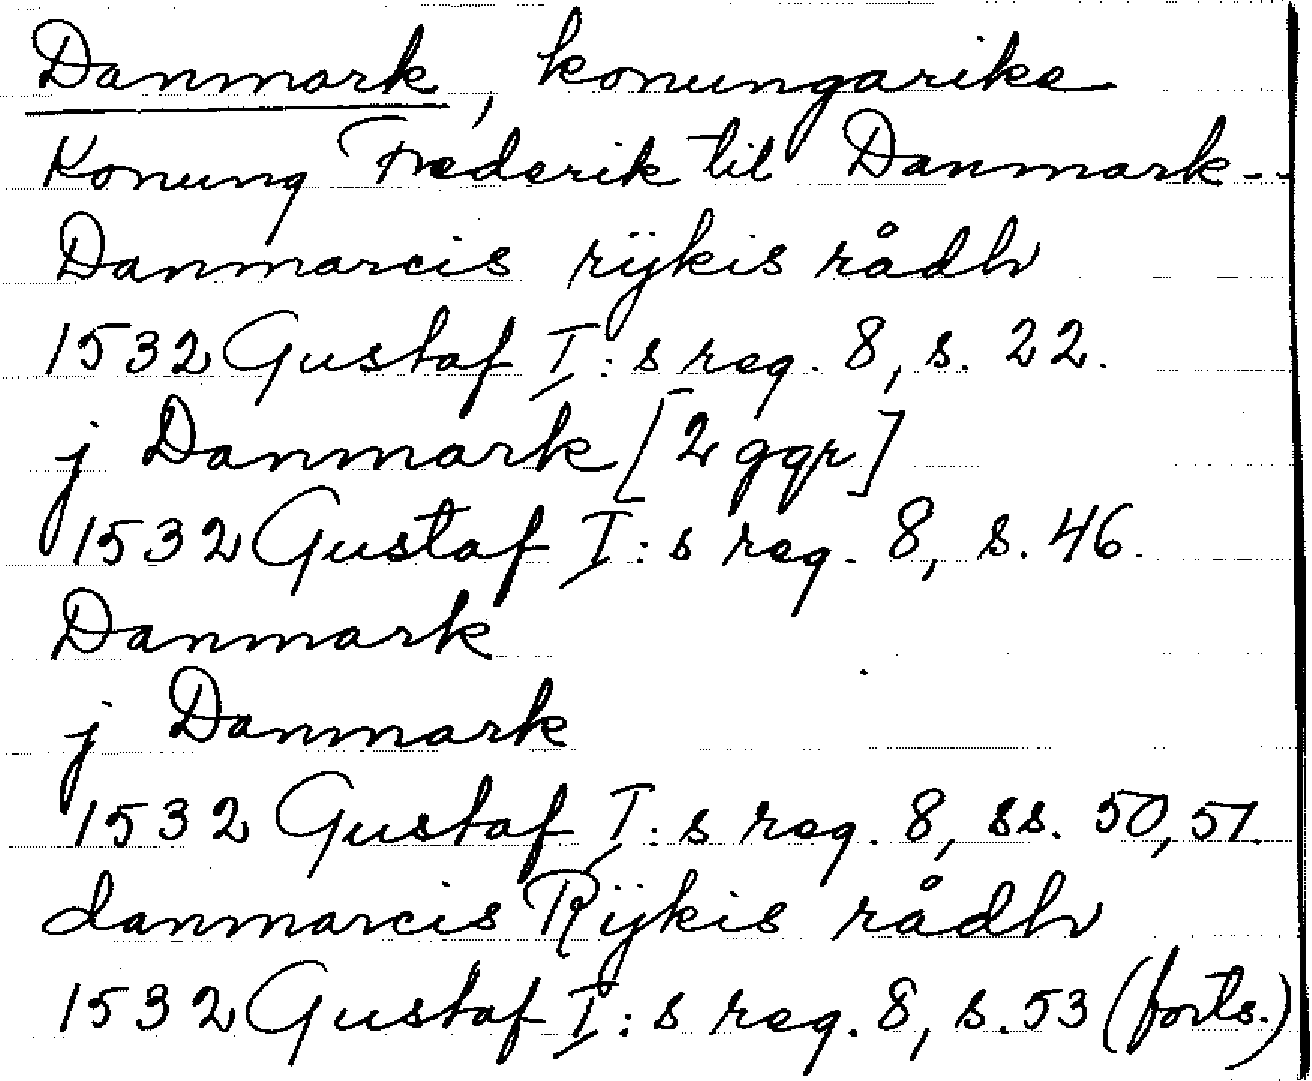 Danmark, konungarike
Konung Frederik til Danmark--
Danmarcis rÿkis rådh
1532 Gustaf I:s reg. 8, s. 22.
j Danmark [2 ggr]
1532 Gustaf I:s reg. 8, s. 46.
Danmark
j Danmark
1532 Gustaf I:s reg. 8, ss. 50, 51.
danmarcis Rÿkis rådh
1532 Gustaf I:s reg. 8, s. 53 (forts.)